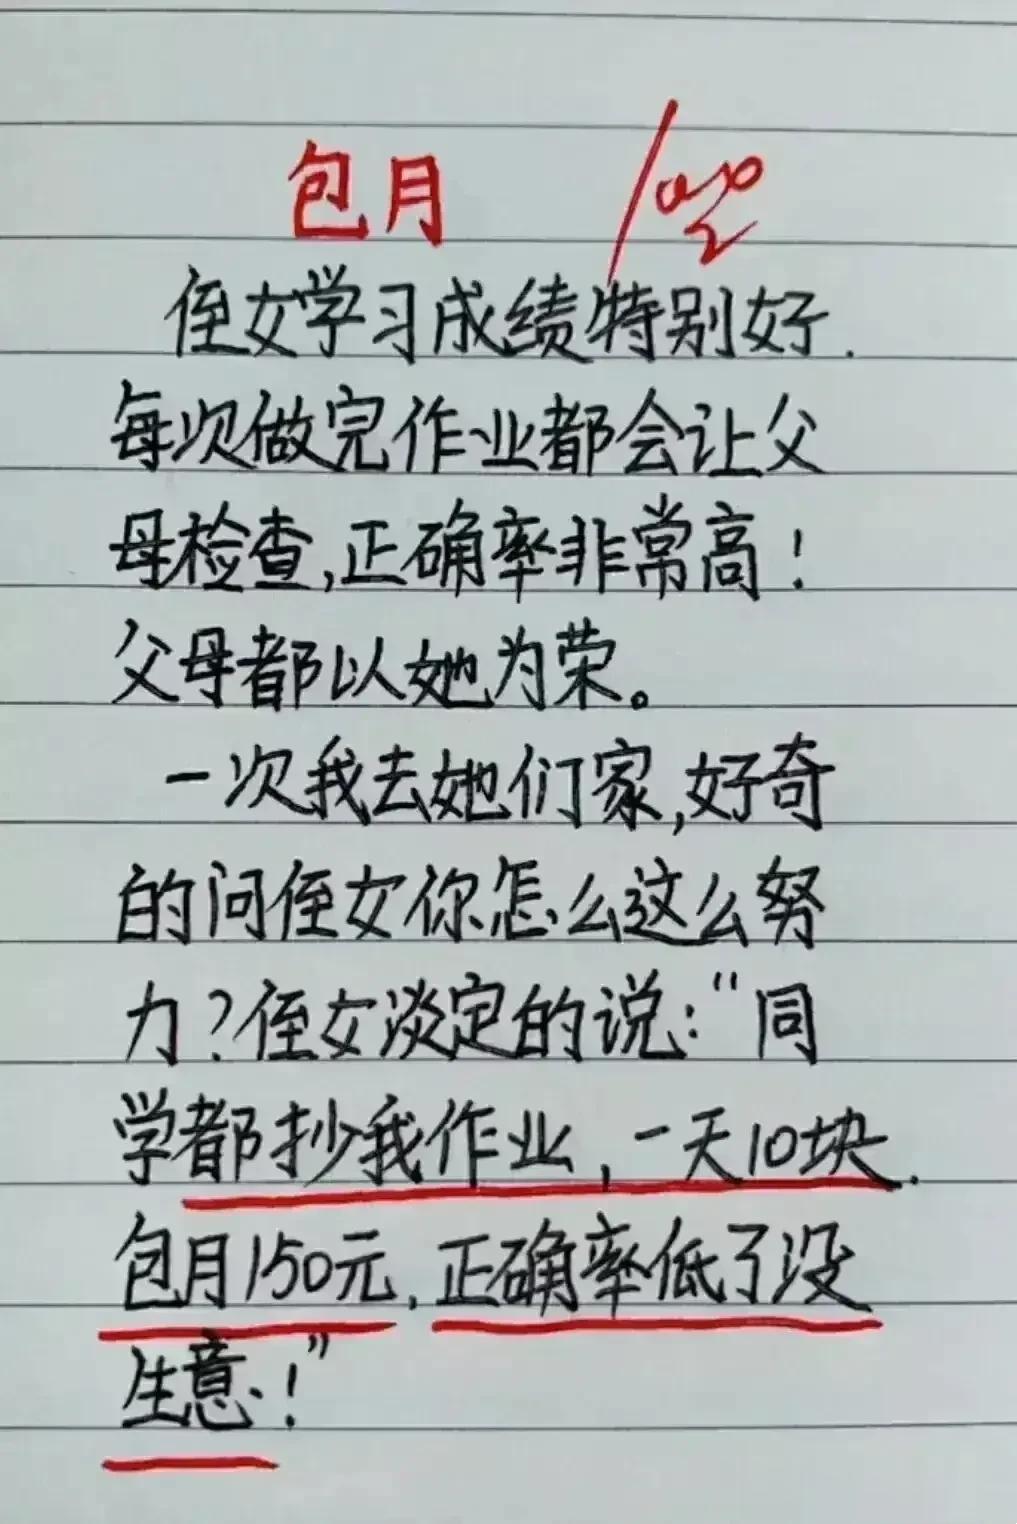 包月
侄女学习成绩特别好.
每次做完作业都会让父
母检查,正确率非常高！
父母都以她为荣。
一次我去她们家,好奇
的问侄女你怎么这么努
力?侄女淡定的说:“同
学都抄我作业,一天10块.
包月150元,正确率低了没
生意!”